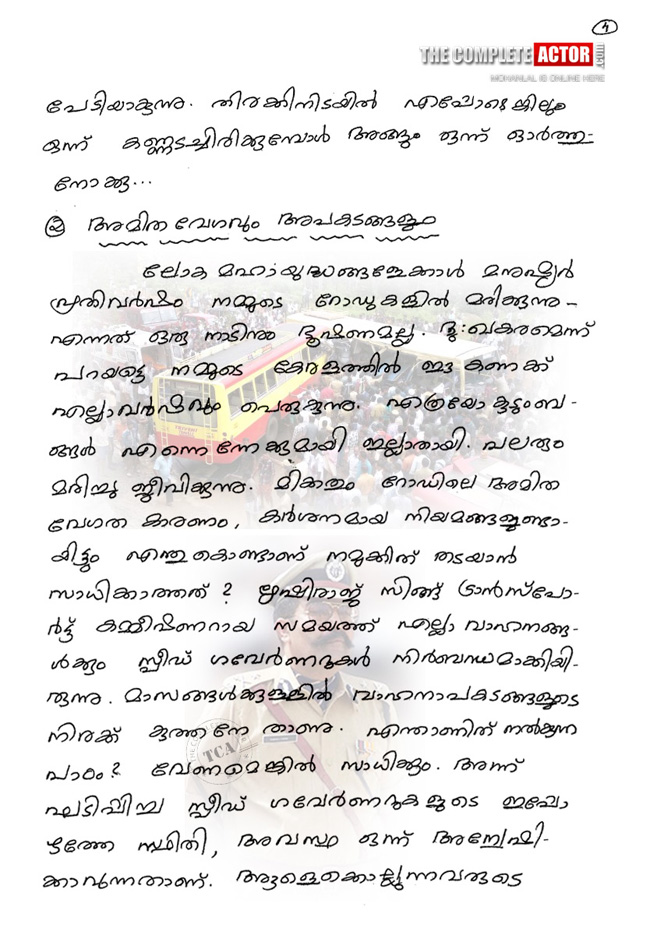 ൧
THE COMPLETE ACTOR .COM
MOHANLAL IS ONLINE HERE
പേടിയാകുന്നു. തിരക്കിനിടയിൽ എപ്പോഴെങ്കിലും
ഒന്ന് കണ്ണടച്ചിരിക്കുമ്പോൾ അങ്ങും ഒന്ന് ഓർത്തു-
നോക്കൂ...
② അമിത വേഗവും അപകടങ്ങളും
ലോക മഹായുദ്ധങ്ങളേക്കാൾ മനുഷ്യർ
പ്രതിവർഷം നമ്മുടെ റോഡുകളിൽ മരിക്കുന്നു -
എന്നത് ഒരു നാടിനും ഭൂഷണമല്ല. ദുഃഖകരമെന്ന്
പറയട്ടെ നമ്മുടെ കേരളത്തിൽ ഈ കണക്ക്
എല്ലാവർഷവും പെരുകുന്നു. എത്രയോ കുടുംബ-
ങ്ങൾ എന്നെന്നേക്കുമായി ഇല്ലാതായി. പലരും
മരിച്ചു ജീവിക്കുന്നു. മിക്കതും റോഡിലെ അമിത
വേഗത കാരണം, കർശനമായ നിയമങ്ങളുണ്ടാ-
യിട്ടും എന്തുകൊണ്ടാണ് നമുക്കിത് തടയാൻ
സാധിക്കാത്തത്? ഋഷിരാജ് സിങ്ങ് ട്രാൻസ്പോ-
ർട്ട് കമ്മീഷണറായ സമയത്ത് എല്ലാ വാഹനങ്ങ-
ൾക്കും സ്പീഡ് ഗവേർണറുകൾ നിർബന്ധമാക്കിയി-
രുന്നു. മാസങ്ങൾക്കുള്ളിൽ വാഹനാപകടങ്ങളുടെ
നിരക്ക് കുത്തനേ താണു. എന്താണിത് നൽകുന്ന
പാഠം? വേണമെങ്കിൽ സാധിക്കും. അന്ന്
ഘടിപ്പിച്ച സ്പീഡ് ഗവേർണറുകളുടെ ഇപ്പോ
ഴത്തേ സ്ഥിതി, അവസ്ഥ ഒന്ന് അന്വേഷി-
ക്കാവുന്നതാണ്. ആളെക്കൊല്ലുന്നവരുടെ
TCA